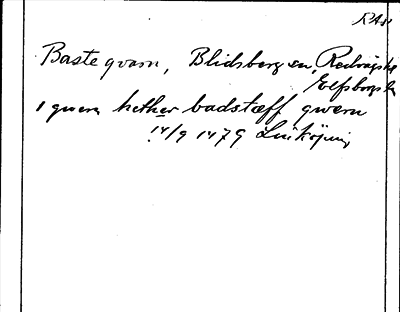 RAp
Basteqvarn, Blidsberg sn, Redvägs hd
Elfsborgs län
1 quern hether badstæff qwern
14/9 1479 Linköping